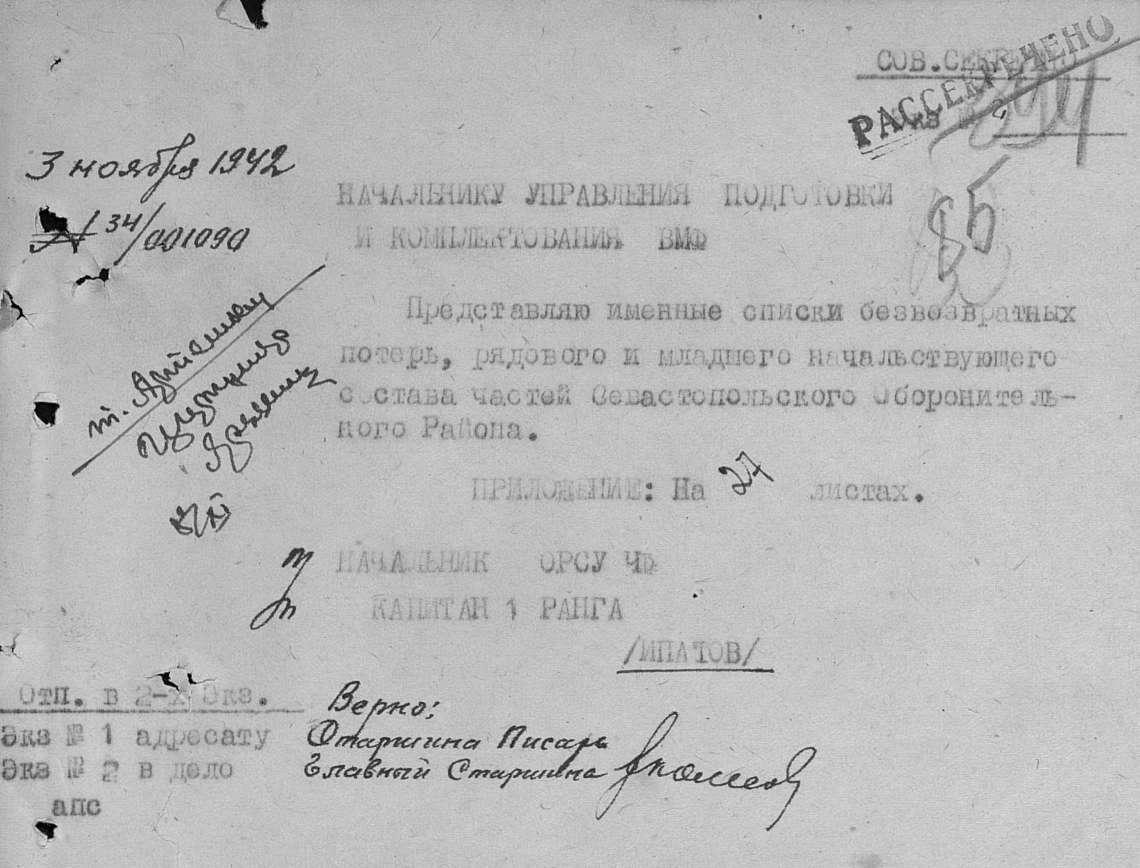 СОВ.СЕКРЕТНО
РАССЕКРЕЧЕНО
3 ноября 1942
№ 34/001090
85
НАЧАЛЬНИКУ УПРАВЛЕНИЯ ПОДГОТОВКИ
И КОМПЛЕКТОВАНИЯ ВМФ
Представляю именные списки безвозвратных
потерь, рядового и младшего начальствующего
состава частей Севастопольского Оборонитель-
ного Района.
ПРИЛОЖЕНИЕ: На 27 листах.
НАЧАЛЬНИК ОРСУ ЧФ
КАПИТАН 1 РАНГА
/ИПАТОВ/
Отп. в 2-х Экз.
Экз № 1 адресату
Экз № 2 в дело
апс
Верно:
Старшина Писарь
Главный Старшина